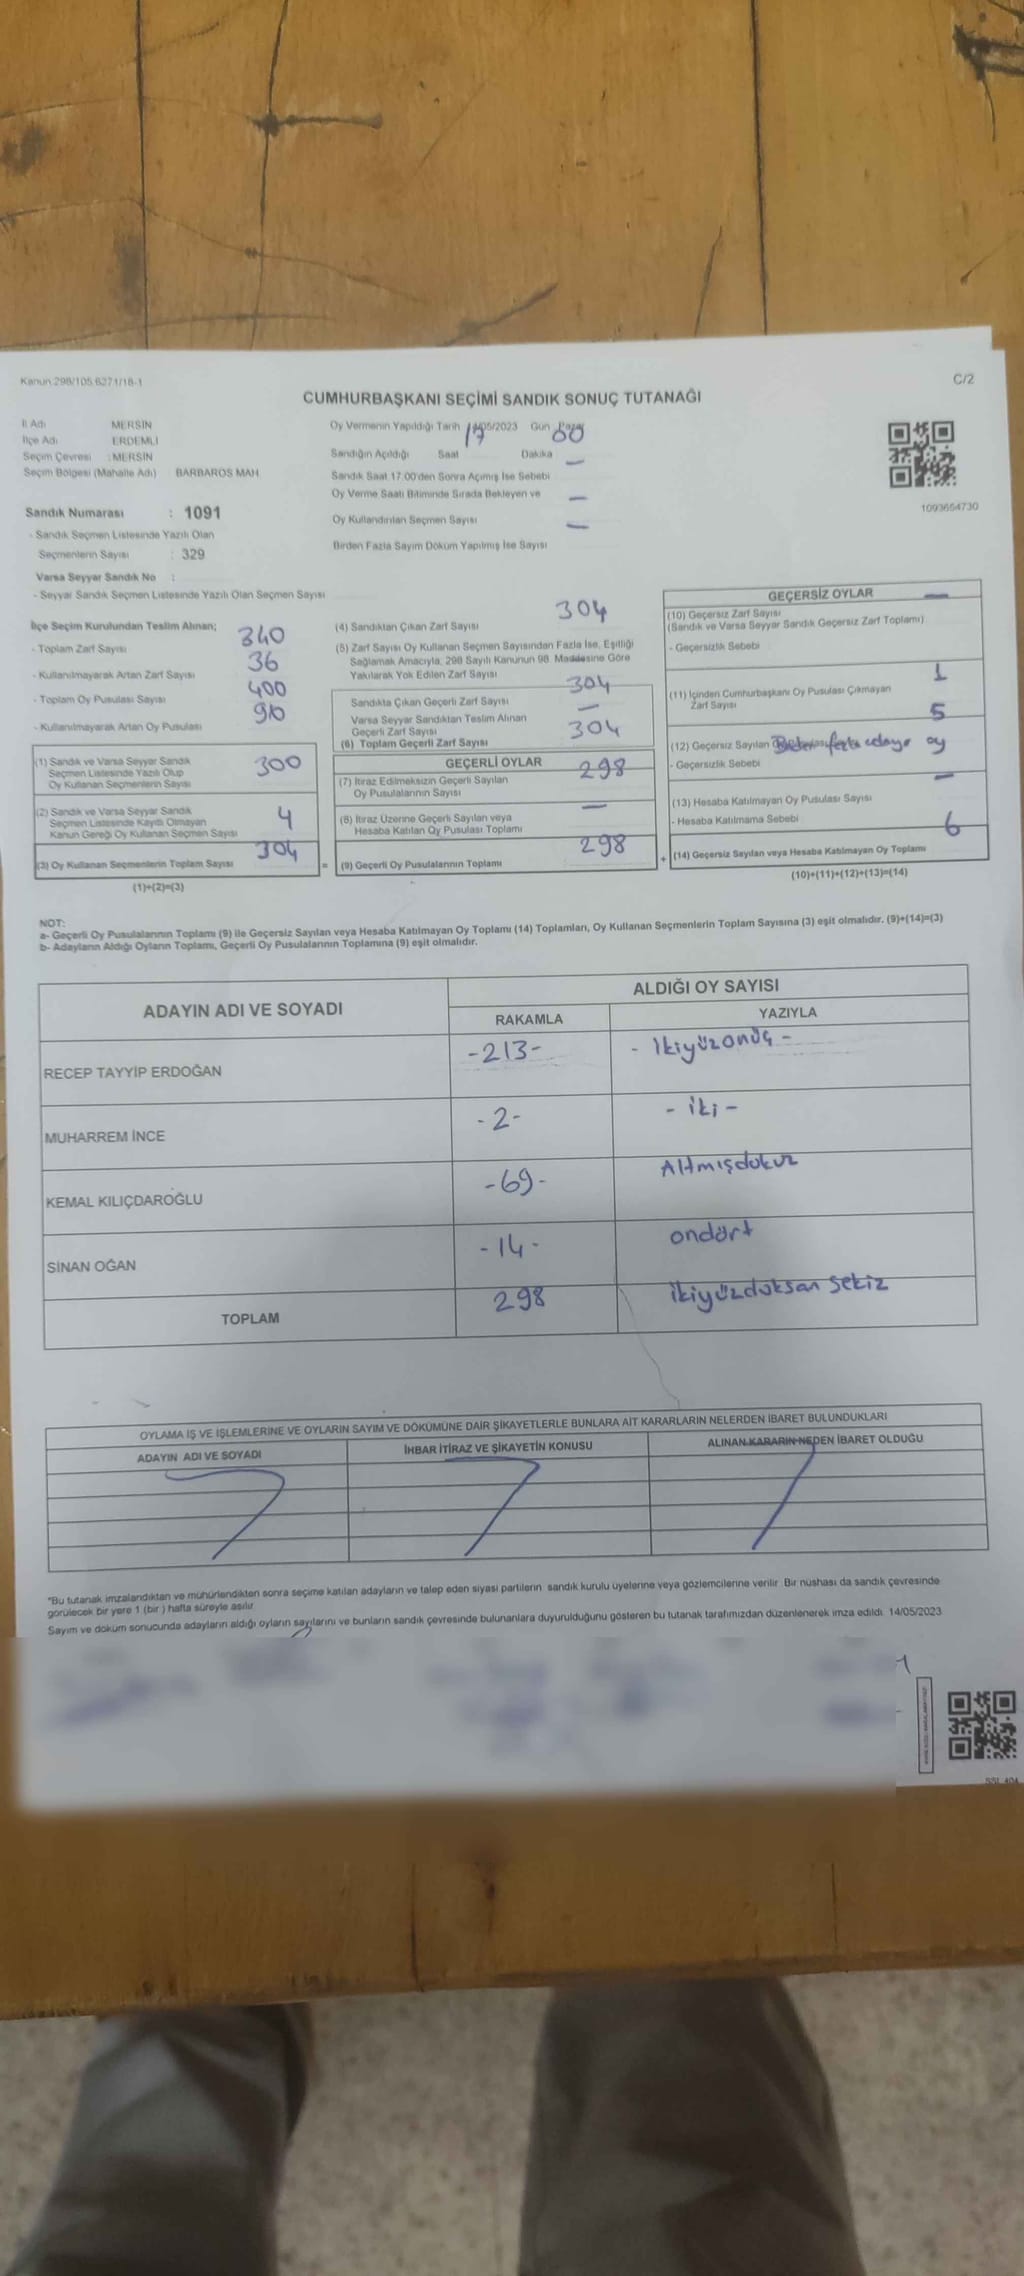 Kanun:298/105,6271/18-1
C/2
CUMHURBAŞKANI SEÇİMİ SANDIK SONUÇ TUTANAĞI
İl Adı MERSİN
İlçe Adı ERDEMLİ
Seçim Çevresi : MERSİN
Seçim Bölgesi (Mahalle Adı) BARBAROS MAH
Sandık Numarası : 1091
- Sandık Seçmen Listesinde Yazılı Olan
Seçmenlerin Sayısı : 329
Varsa Seyyar Sandık No :
- Seyyar Sandık Seçmen Listesinde Yazılı Olan Seçmen Sayısı
Oy Vermenin Yapıldığı Tarih /05/2023 Gün Pazar
17 00
Sandığın Açıldığı Saat Dakika
Sandık Saat 17:00'den Sonra Açımış İse Sebebi —
Oy Verme Saati Bitiminde Sırada Bekleyen ve
Oy Kullandırılan Seçmen Sayısı —
Birden Fazla Sayım Döküm Yapılmış İse Sayısı —
1093654730
İlçe Seçim Kurulundan Teslim Alınan;
- Toplam Zarf Sayısı 340
- Kullanılmayarak Artan Zarf Sayısı 36
- Toplam Oy Pusulası Sayısı 400
- Kullanılmayarak Artan Oy Pusulası
(1) Sandık ve Varsa Seyyar Sandık
Seçmen Listesinde Yazılı Olup
Oy Kullanan Seçmenlerin Sayısı 300
(2) Sandık ve Varsa Seyyar Sandık
Seçmen Listesinde Kayıtlı Olmayan
Kanun Gereği Oy Kullanan Seçmen Sayısı 4
(3) Oy Kullanan Seçmenlerin Toplam Sayısı 304
(1)+(2)=(3)
(4) Sandıktan Çıkan Zarf Sayısı 304
(5) Zarf Sayısı Oy Kullanan Seçmen Sayısından Fazla İse, Eşitliği
Sağlamak Amacıyla, 298 Sayılı Kanunun 98. Maddesine Göre
Yakılarak Yok Edilen Zarf Sayısı
Sandıkta Çıkan Geçerli Zarf Sayısı 304
Varsa Seyyar Sandıktan Teslim Alınan
Geçerli Zarf Sayısı —
(6) Toplam Geçerli Zarf Sayısı 304
GEÇERLİ OYLAR
(7) İtiraz Edilmeksizin Geçerli Sayılan
Oy Pusulalarının Sayısı 298
(8) İtiraz Üzerine Geçerli Sayılan veya
Hesaba Katılan Oy Pusulası Toplamı —
= (9) Geçerli Oy Pusulalarının Toplamı 298
GEÇERSİZ OYLAR
(10) Geçersiz Zarf Sayısı —
(Sandık ve Varsa Seyyar Sandık Geçersiz Zarf Toplamı)
- Geçersizlik Sebebi
(11) İçinden Cumhurbaşkanı Oy Pusulası Çıkmayan
Zarf Sayısı 1
5
(12) Geçersiz Sayılan Birden fazla adaya oy
- Geçersizlik Sebebi
(13) Hesaba Katılmayan Oy Pusulası Sayısı —
- Hesaba Katılmama Sebebi
+ (14) Geçersiz Sayılan veya Hesaba Katılmayan Oy Toplamı 6
(10)+(11)+(12)+(13)=(14)
NOT:
a- Geçerli Oy Pusulalarının Toplamı (9) ile Geçersiz Sayılan veya Hesaba Katılmayan Oy Toplamı (14) Toplamları, Oy Kullanan Seçmenlerin Toplam Sayısına (3) eşit olmalıdır. (9)+(14)=(3)
b- Adayların Aldığı Oyların Toplamı, Geçerli Oy Pusulalarının Toplamına (9) eşit olmalıdır.
ADAYIN ADI VE SOYADI ALDIĞI OY SAYISI
RAKAMLA YAZIYLA
RECEP TAYYİP ERDOĞAN -213- - ikiyüzonüç -
MUHARREM İNCE -2- - iki -
KEMAL KILIÇDAROĞLU -69- Altmışdokuz
SİNAN OĞAN -14- ondört
TOPLAM 298 ikiyüzdoksan sekiz
OYLAMA İŞ VE İŞLEMLERİNE VE OYLARIN SAYIM VE DÖKÜMÜNE DAİR ŞİKAYETLERLE BUNLARA AİT KARARLARIN NELERDEN İBARET BULUNDUKLARI
ADAYIN ADI VE SOYADI İHBAR İTİRAZ VE ŞİKAYETİN KONUSU ALINAN KARARIN NEDEN İBARET OLDUĞU
*Bu tutanak imzalandıktan ve mühürlendikten sonra seçime katılan adayların ve talep eden siyasi partilerin sandık kurulu üyelerine veya gözlemcilerine verilir. Bir nüshası da sandık çevresinde
görülecek bir yere 1 (bir ) hafta süreyle asılır.
Sayım ve döküm sonucunda adayların aldığı oyların sayılarını ve bunların sandık çevresinde bulunanlara duyurulduğunu gösteren bu tutanak tarafımızdan düzenlenerek imza edildi. 14/05/2023